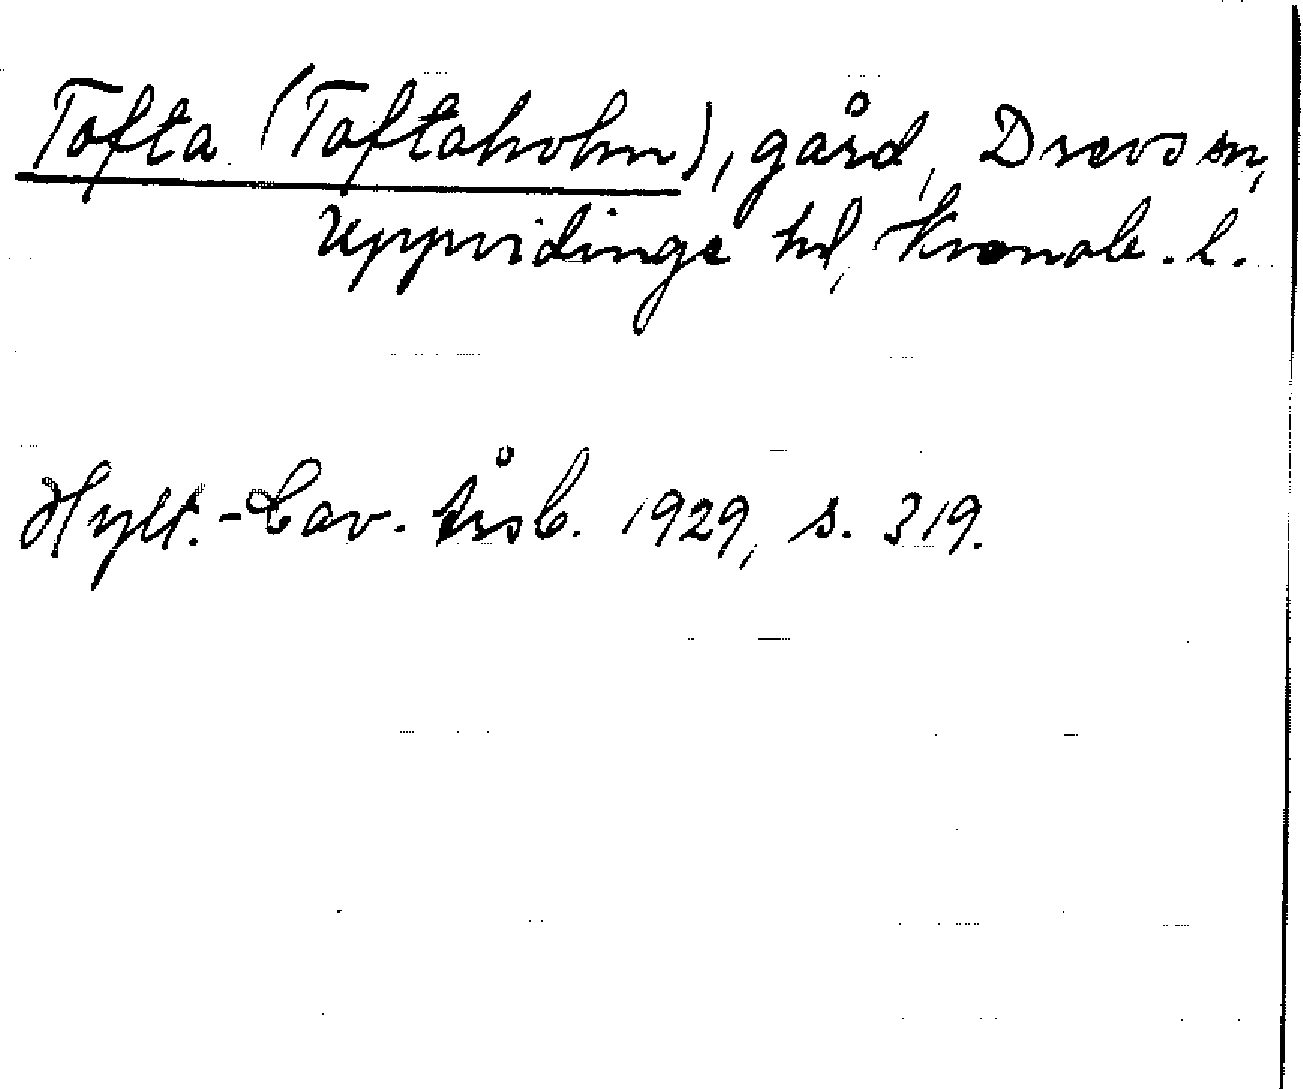 Tofta (Toftaholm), gård, Drevs sn,
Uppvidinge hd, Kronob. l.
Hylt.-Cav. årsb. 1929, s. 319.